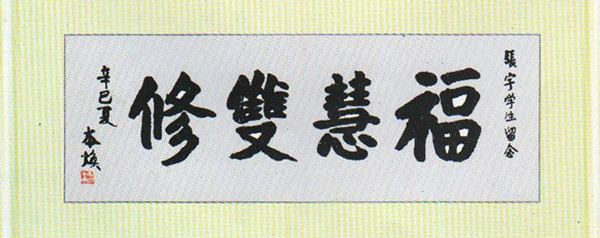 張宇学生留念
福慧雙修
辛巳夏
本焕